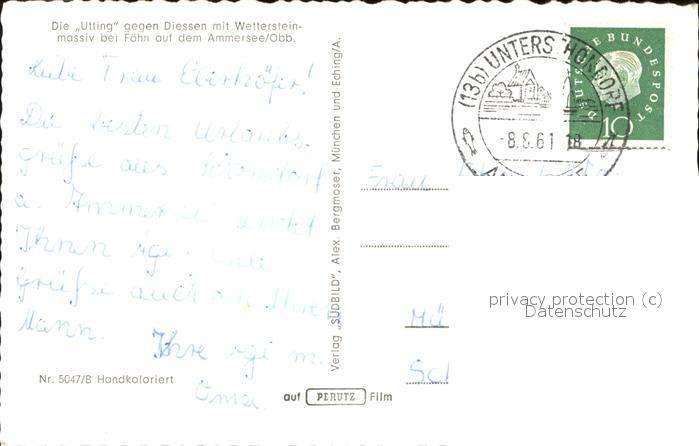 Die „Utting" gegen Diessen mit Wetterstein-
massiv bei Föhn auf dem Ammersee/Obb.
Liebe Frau Eberhöfer!
Die besten Urlaubs-
grüße aus
a. Ammersee
Ihnen
grüße auch an Ihren
Mann. Ihre
Oma.
Nr. 5047/B Handkoloriert
Verlag „SÜDBILD", Alex. Bergmoser, München und Eching/A.
auf PERUTZ Film
(13b) UNTERSCHONDORF
-8.6.61 18
DEUTSCHE BUNDESPOST
10
Frau
Mü
Sch
privacy protection (c)
Datenschutz